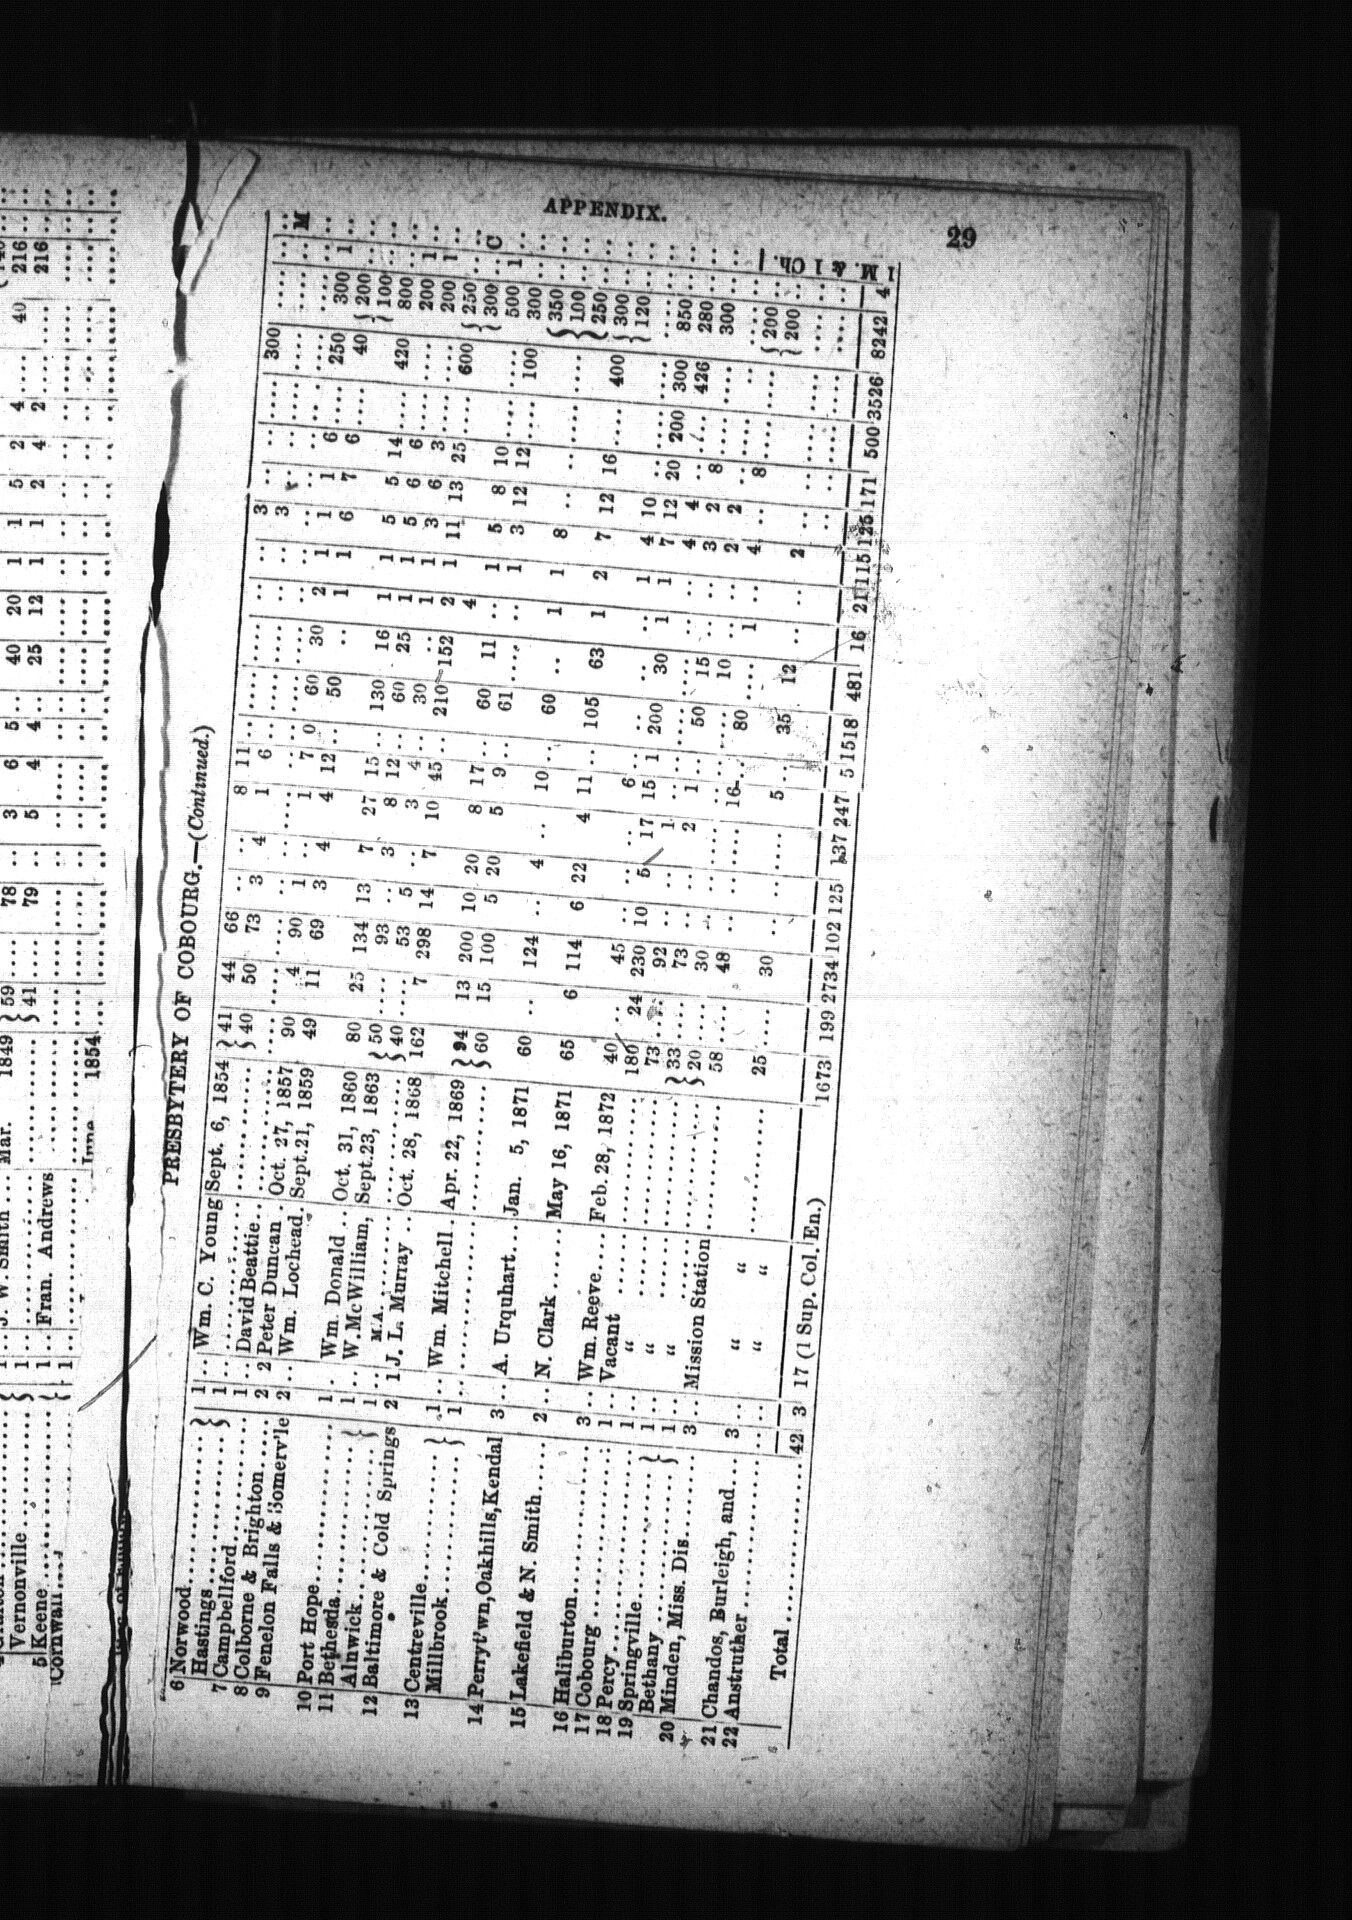 29
APPENDIX.
PRESBYTERY OF COBOURG.—(Continued.)
6 Norwood 1 .. Wm. C. Young Sept. 6, 1854 } 41 44 66 .. .. 8 11 .. .... .... .. .. 3 .. .. .... 300 .... .. ..
Hastings } 1 .. .... } 40 50 73 3 4 1 6 .. .... .... .. .. 3 .. .. .... .... .... .. M
7 Campbellford 1 .. David Beattie
8 Colborne & Brighton 2 2 Peter Duncan Oct. 27, 1857 90 4 90 1 .. 1 7 0 60 30 2 1 1 1 6 .... 250 300 1 ..
9 Fenelon Falls & Somerv'le 2 .. Wm. Lochead Sept. 21, 1859 49 11 69 3 4 4 12 .. 50 .. 1 1 6 7 6 .... 40 { 200 .. ..
{ 100 .. ..
10 Port Hope 1 .. Wm. Donald Oct. 31, 1860 80 25 134 13 7 27 15 .. 130 16 1 1 5 5 14 .... 420 800 .. ..
11 Bethesda } 1 .. W. McWilliam, Sept. 23, 1863 } 50 .... 93 .. 3 8 12 .. 60 25 1 1 5 6 6 .... .... 200 1 ..
Alnwick } 1 .. M.A. } 40 .... 53 5 .. 3 4 .. 30 .. 1 1 3 6 3 .... .... 200 1 ..
12 Baltimore & Cold Springs 2 1 J. L. Murray Oct. 28, 1868 162 7 298 14 7 10 45 .. 210 152 2 1 11 13 25 .... 600 { 250 .. ..
4 { 300 .. C
13 Centreville } 1 .. Wm. Mitchell Apr. 22, 1869 } 94 13 200 10 20 8 17 .. 60 11 .. 1 5 8 10 .... .... 500 1 ..
Millbrook } 1 .. .... } 60 15 100 5 20 5 9 .. 61 .... .. 1 3 12 12 .... 100 300 .. ..
14 Perryt'wn, Oakhills, Kendal 3 .. A. Urquhart Jan. 5, 1871 60 .. 124 .. 4 .. 10 .. 60 .. 1 1 8 .. .. .... .... } 350 .. ..
} 100 .. ..
} 250 .. ..
15 Lakefield & N. Smith 2 .. N. Clark May 16, 1871 65 6 114 6 22 4 11 .. 105 63 1 2 7 12 16 .... 400 { 300 .. ..
{ 120 .. ..
16 Haliburton 3 .. Wm. Reeve Feb. 28, 1872 40 .. 45 .. .. .. 6 .. .. .. .. 1 4 10 .. .... .... .... .. ..
17 Cobourg 1 .. Vacant 180 24 230 10 5 17 15 1 200 30 1 1 7 12 20 200 300 850 .. ..
18 Percy 1 .. “ 73 .. 92 .. .. 1 .. .. .... .... .. .. 4 4 .. .. 426 280 .. ..
19 Springville } 1 .. “ } 33 .... 73 .. .. 2 1 .. 50 15 .. .. 3 2 8 .... .... 300 .. ..
Bethany } 1 .. “ } 20 .... 30 .. .. .. .. .. .. 10 .. .. 2 2 .. .... .. .... .. ..
20 Minden, Miss. Dis 3 .. Mission Station 58 .... 48 .. .. .. 16 .. 80 .... 1 .. 4 .. 8 .... .... { 200
{ 200
21 Chandos, Burleigh, and
22 Anstruther 3 .. “ “ 25 .... 30 .. .. 5 .. 35 12 .. .. 2 .. .. .... .... ....
“ “
Total 42 3 17 (1 Sup. Col. En.) 1673 199 2734 102 125 137 247 5 1518 481 16 21 115 125 171 500 3526 8242 4 1 M. & 1 Ch.
J. W. Smith Mar. 1849 } 59 .... 78 .. 3 6 5 .. 40 20 1 1 5 2 4 .... 40 216
Vernonville } 1 .. } 41 .... 79 .. 5 4 4 .. 25 12 1 1 2 4 2 .... 216
5 Keene 1 .. Fran. Andrews
Cornwall 1
June 1854